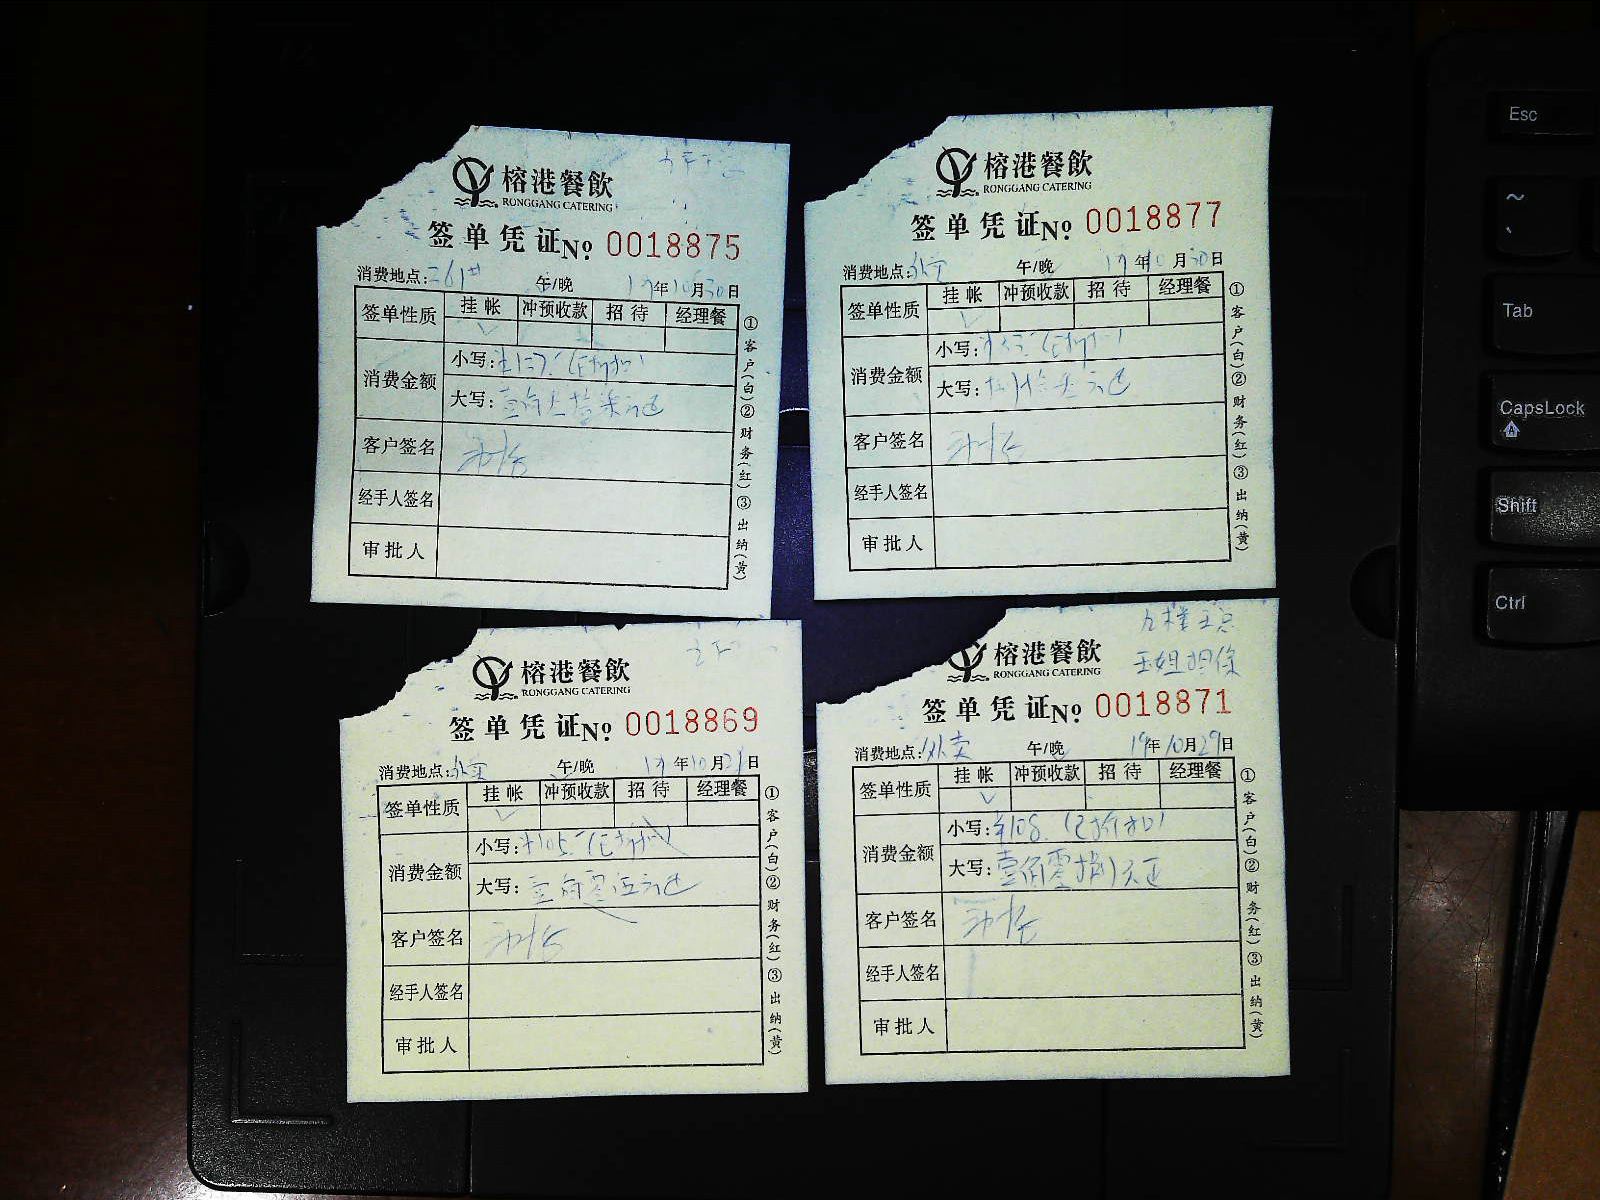 榕港餐飲
RONGGANG CATERING
签单凭证 No 0018875
消费地点: 午/晚 19年10月30日
签单性质 挂帐 冲预收款 招待 经理餐
消费金额
小写:
大写:
客户签名
经手人签名
审批人
①客户(白)②财务(红)③出纳(黄)
榕港餐飲
RONGGANG CATERING
签单凭证 No 0018877
消费地点: 午/晚 19年10月30日
签单性质 挂帐 冲预收款 招待 经理餐
消费金额
小写:
大写:
客户签名
经手人签名
审批人
①客户(白)②财务(红)③出纳(黄)
榕港餐飲
RONGGANG CATERING
签单凭证 No 0018869
消费地点:外卖 午/晚 19年10月29日
签单性质 挂帐 冲预收款 招待 经理餐
消费金额
小写:¥105.(已折扣)
大写:壹佰零伍元正
客户签名
经手人签名
审批人
①客户(白)②财务(红)③出纳(黄)
榕港餐飲
RONGGANG CATERING
签单凭证 No 0018871
消费地点:外卖 午/晚 19年10月29日
签单性质 挂帐 冲预收款 招待 经理餐
消费金额
小写:¥108.(已折扣)
大写:壹佰零捌元正
客户签名
经手人签名
审批人
①客户(白)②财务(红)③出纳(黄)
Esc
~
Tab
CapsLock
A
Shift
Ctrl